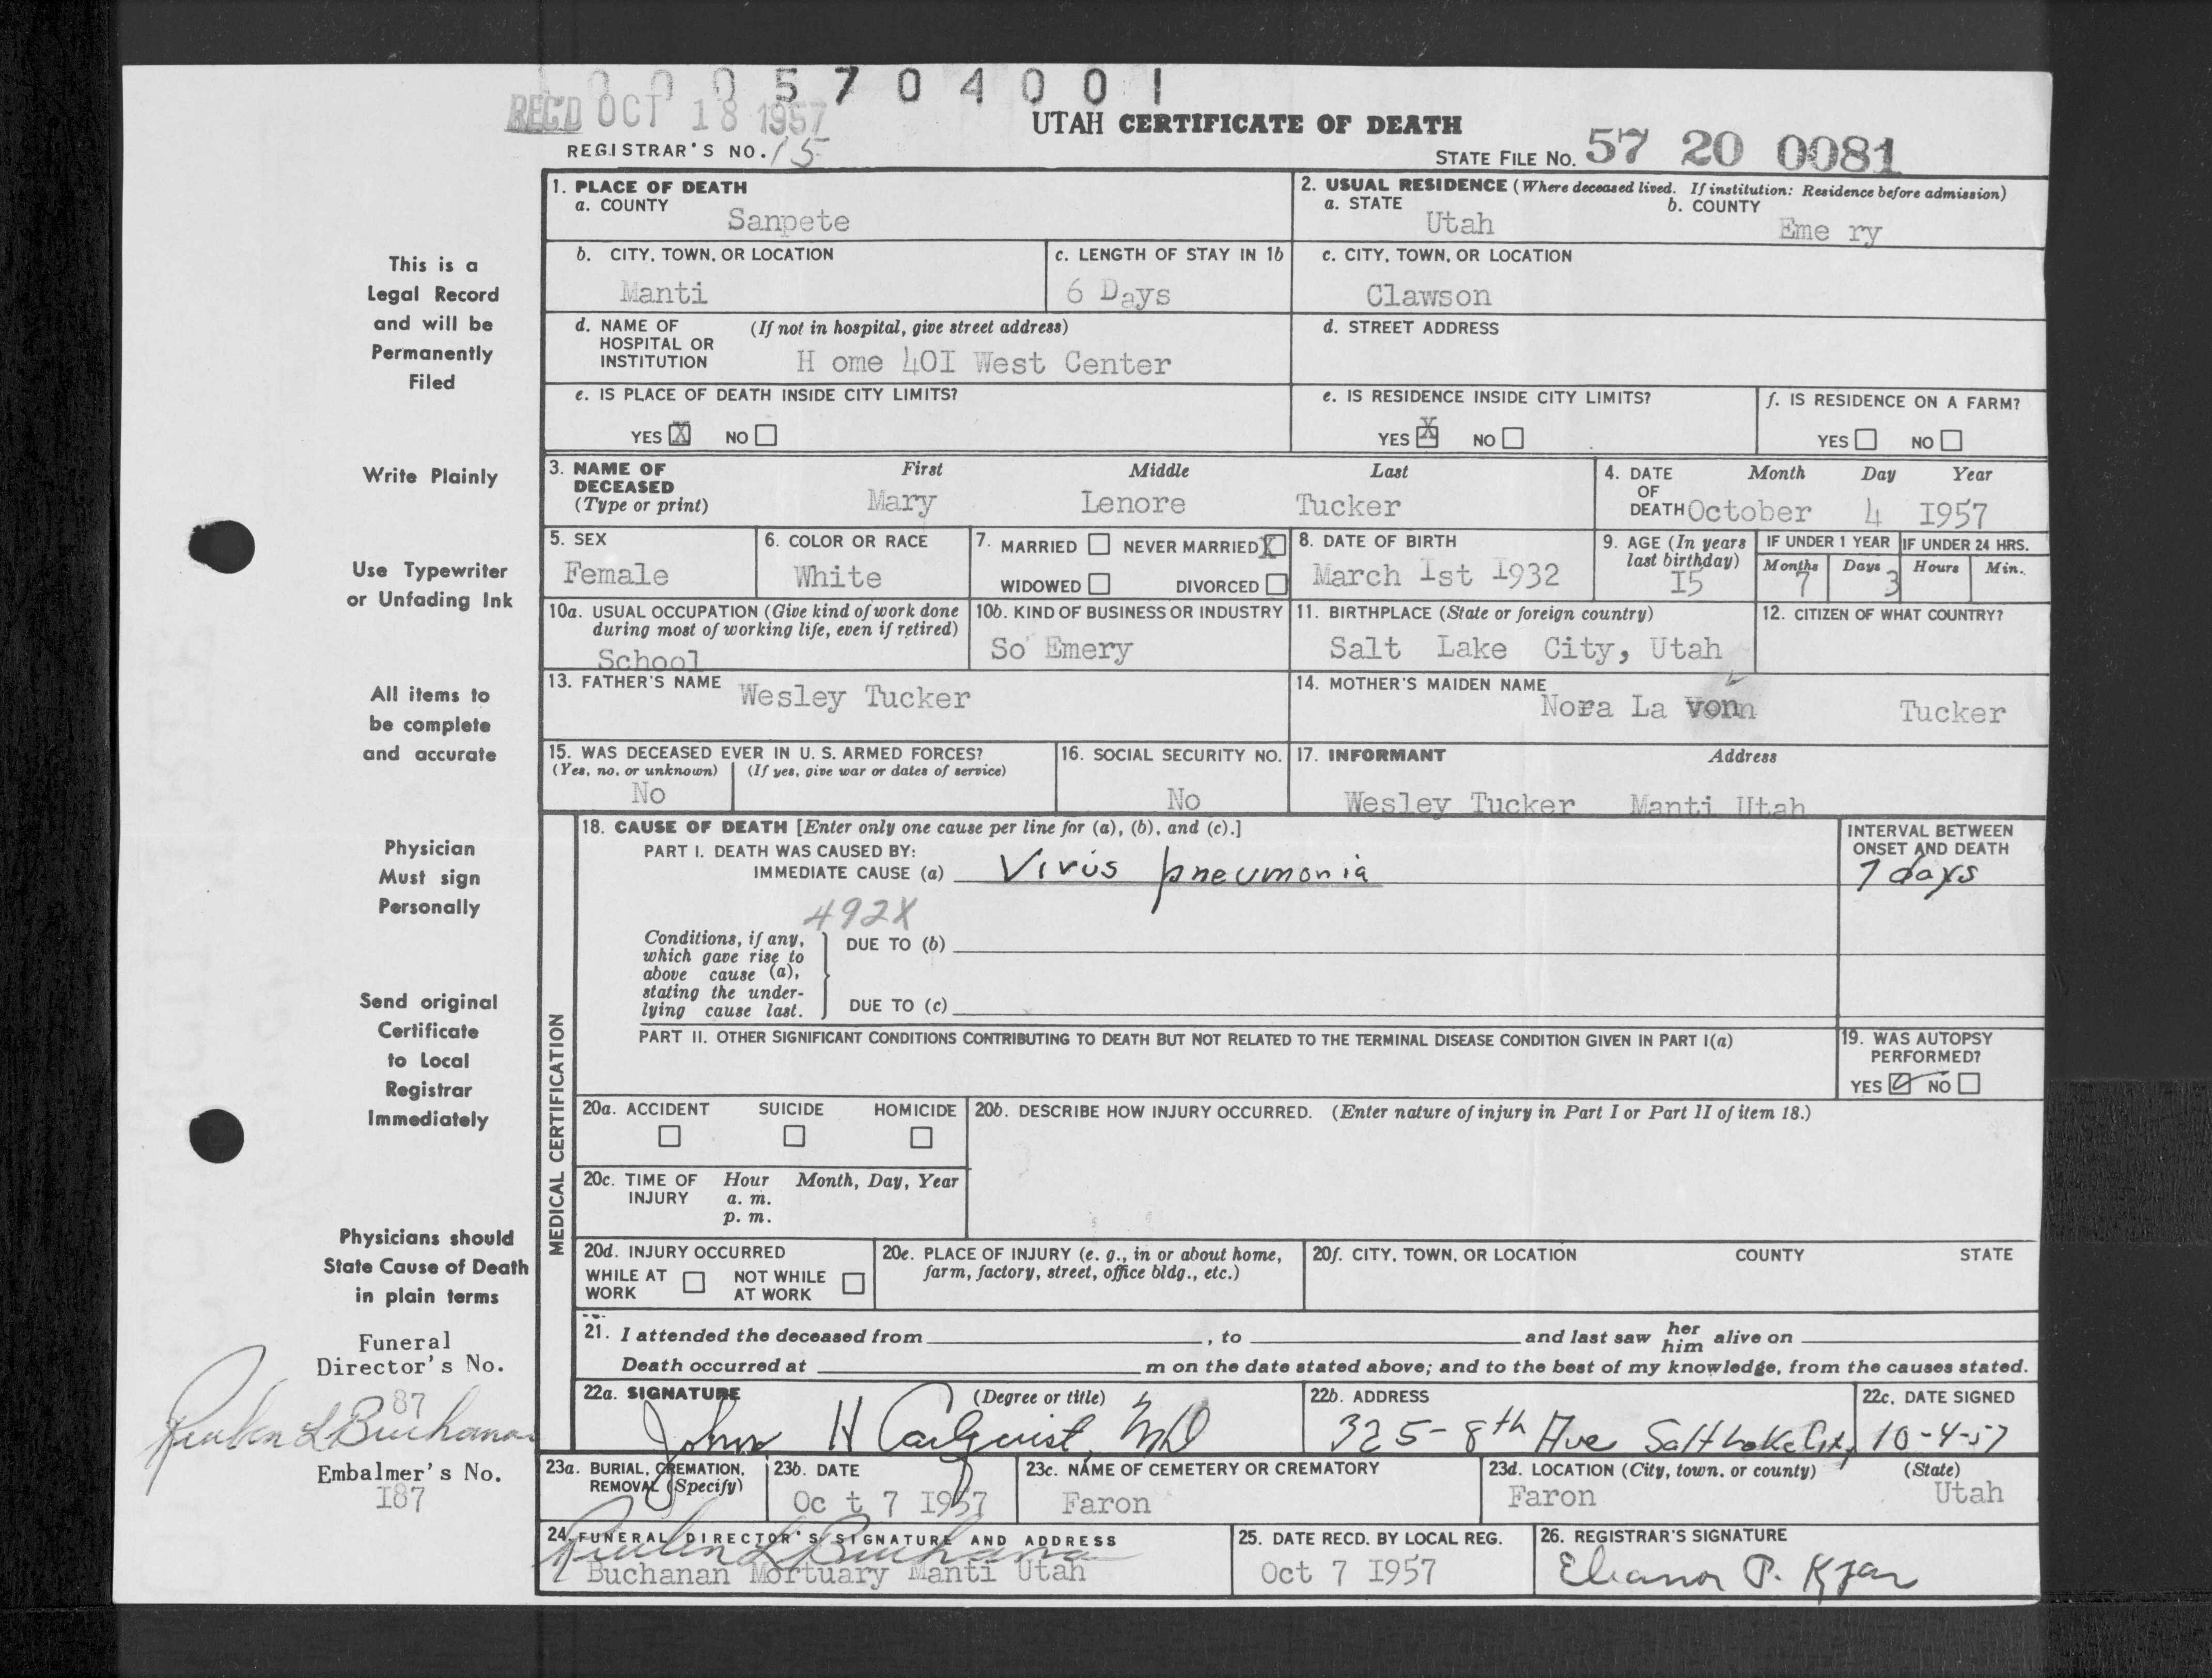 0005704001
REC'D OCT 18 1957
UTAH CERTIFICATE OF DEATH
REGISTRAR'S NO. 15
STATE FILE NO. 57 20 0081
This is a
Legal Record
and will be
Permanently
Filed
Write Plainly
Use Typewriter
or Unfading Ink
All items to
be complete
and accurate
Physician
Must sign
Personally
Send original
Certificate
to Local
Registrar
Immediately
Physicians should
State Cause of Death
in plain terms
Funeral
Director's No.
87
Reuben L Buchanan
Embalmer's No.
I87
1. PLACE OF DEATH
a. COUNTY
Sanpete
2. USUAL RESIDENCE (Where deceased lived. If institution: Residence before admission)
a. STATE b. COUNTY
Utah Eme ry
b. CITY, TOWN, OR LOCATION
Manti
c. LENGTH OF STAY IN 1b
6 Days
c. CITY, TOWN, OR LOCATION
Clawson
d. NAME OF (If not in hospital, give street address)
HOSPITAL OR
INSTITUTION H ome 40I West Center
d. STREET ADDRESS
e. IS PLACE OF DEATH INSIDE CITY LIMITS?
YES X NO
e. IS RESIDENCE INSIDE CITY LIMITS?
YES X NO
f. IS RESIDENCE ON A FARM?
YES NO
3. NAME OF First Middle Last
DECEASED
(Type or print) Mary Lenore Tucker
4. DATE Month Day Year
OF
DEATH October 4 I957
5. SEX
Female
6. COLOR OR RACE
White
7. MARRIED NEVER MARRIED X
WIDOWED DIVORCED
8. DATE OF BIRTH
March Ist I932
9. AGE (In years
last birthday)
I5
IF UNDER 1 YEAR
Months Days
7 3
IF UNDER 24 HRS.
Hours Min.
10a. USUAL OCCUPATION (Give kind of work done
during most of working life, even if retired)
School
10b. KIND OF BUSINESS OR INDUSTRY
So Emery
11. BIRTHPLACE (State or foreign country)
Salt Lake City, Utah
12. CITIZEN OF WHAT COUNTRY?
13. FATHER'S NAME
Wesley Tucker
14. MOTHER'S MAIDEN NAME
Nora La vonn Tucker
15. WAS DECEASED EVER IN U. S. ARMED FORCES?
(Yes, no, or unknown) (If yes, give war or dates of service)
No
16. SOCIAL SECURITY NO.
No
17. INFORMANT Address
Wesley Tucker Manti Utah
MEDICAL CERTIFICATION
18. CAUSE OF DEATH [Enter only one cause per line for (a), (b), and (c).]
PART I. DEATH WAS CAUSED BY:
IMMEDIATE CAUSE (a) Virus pneumonia
INTERVAL BETWEEN
ONSET AND DEATH
7 days
492X
Conditions, if any,
which gave rise to
above cause (a),
stating the under-
lying cause last.
DUE TO (b)
DUE TO (c)
PART II. OTHER SIGNIFICANT CONDITIONS CONTRIBUTING TO DEATH BUT NOT RELATED TO THE TERMINAL DISEASE CONDITION GIVEN IN PART I(a)
19. WAS AUTOPSY
PERFORMED?
YES ✓ NO
20a. ACCIDENT SUICIDE HOMICIDE
20b. DESCRIBE HOW INJURY OCCURRED. (Enter nature of injury in Part I or Part II of item 18.)
20c. TIME OF Hour Month, Day, Year
INJURY a. m.
p. m.
20d. INJURY OCCURRED
WHILE AT NOT WHILE
WORK AT WORK
20e. PLACE OF INJURY (e. g., in or about home,
farm, factory, street, office bldg., etc.)
20f. CITY, TOWN, OR LOCATION COUNTY STATE
21. I attended the deceased from , to and last saw her him alive on
Death occurred at m on the date stated above; and to the best of my knowledge, from the causes stated.
22a. SIGNATURE (Degree or title)
John H Carlquist, MD
22b. ADDRESS
325-8th Ave Salt Lake City
22c. DATE SIGNED
10-4-57
23a. BURIAL, CREMATION,
REMOVAL (Specify)
23b. DATE
Oc t 7 I957
23c. NAME OF CEMETERY OR CREMATORY
Faron
23d. LOCATION (City, town, or county) (State)
Faron Utah
24. FUNERAL DIRECTOR'S SIGNATURE AND ADDRESS
Reuben L Buchanan
Buchanan Mortuary Manti Utah
25. DATE RECD. BY LOCAL REG.
Oct 7 I957
26. REGISTRAR'S SIGNATURE
Eleanor P. Kjar